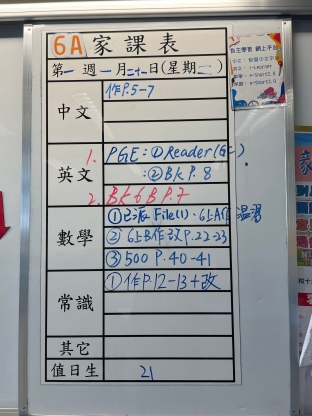 6A 家課表
第一週一月二十一日(星期二)
中文
作P.5-7
英文
1. PGE:①Reader(GE)
:②Bk P.8
2. Bk 6B P.7
數學
①已派File(1)、6上A作 溫習
②6上B作改P.22-23
③500 P.40-41
常識
①作P.12-13+改
其它
值日生
21
自主學習 網上平台